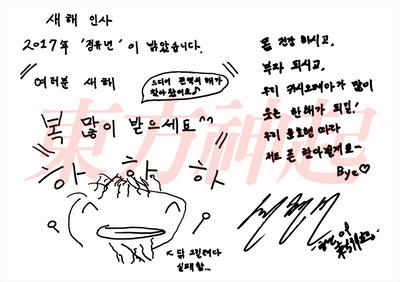 새해 인사
2017年 '정유년' 이 밝았습니다.
여러분 새해
드디어 전역의 해가
찾아왔어요♪
복 많이 받으세요^^
하 하 하
닭 그리려다
실패함...
몸 건강 하시고,
부자 되시고,
우리 카시오페아가 많이
웃는 한해가 되길!
우리 윤호형 따라
저도 곧 찾아갈게요~
Bye♡
東方神起